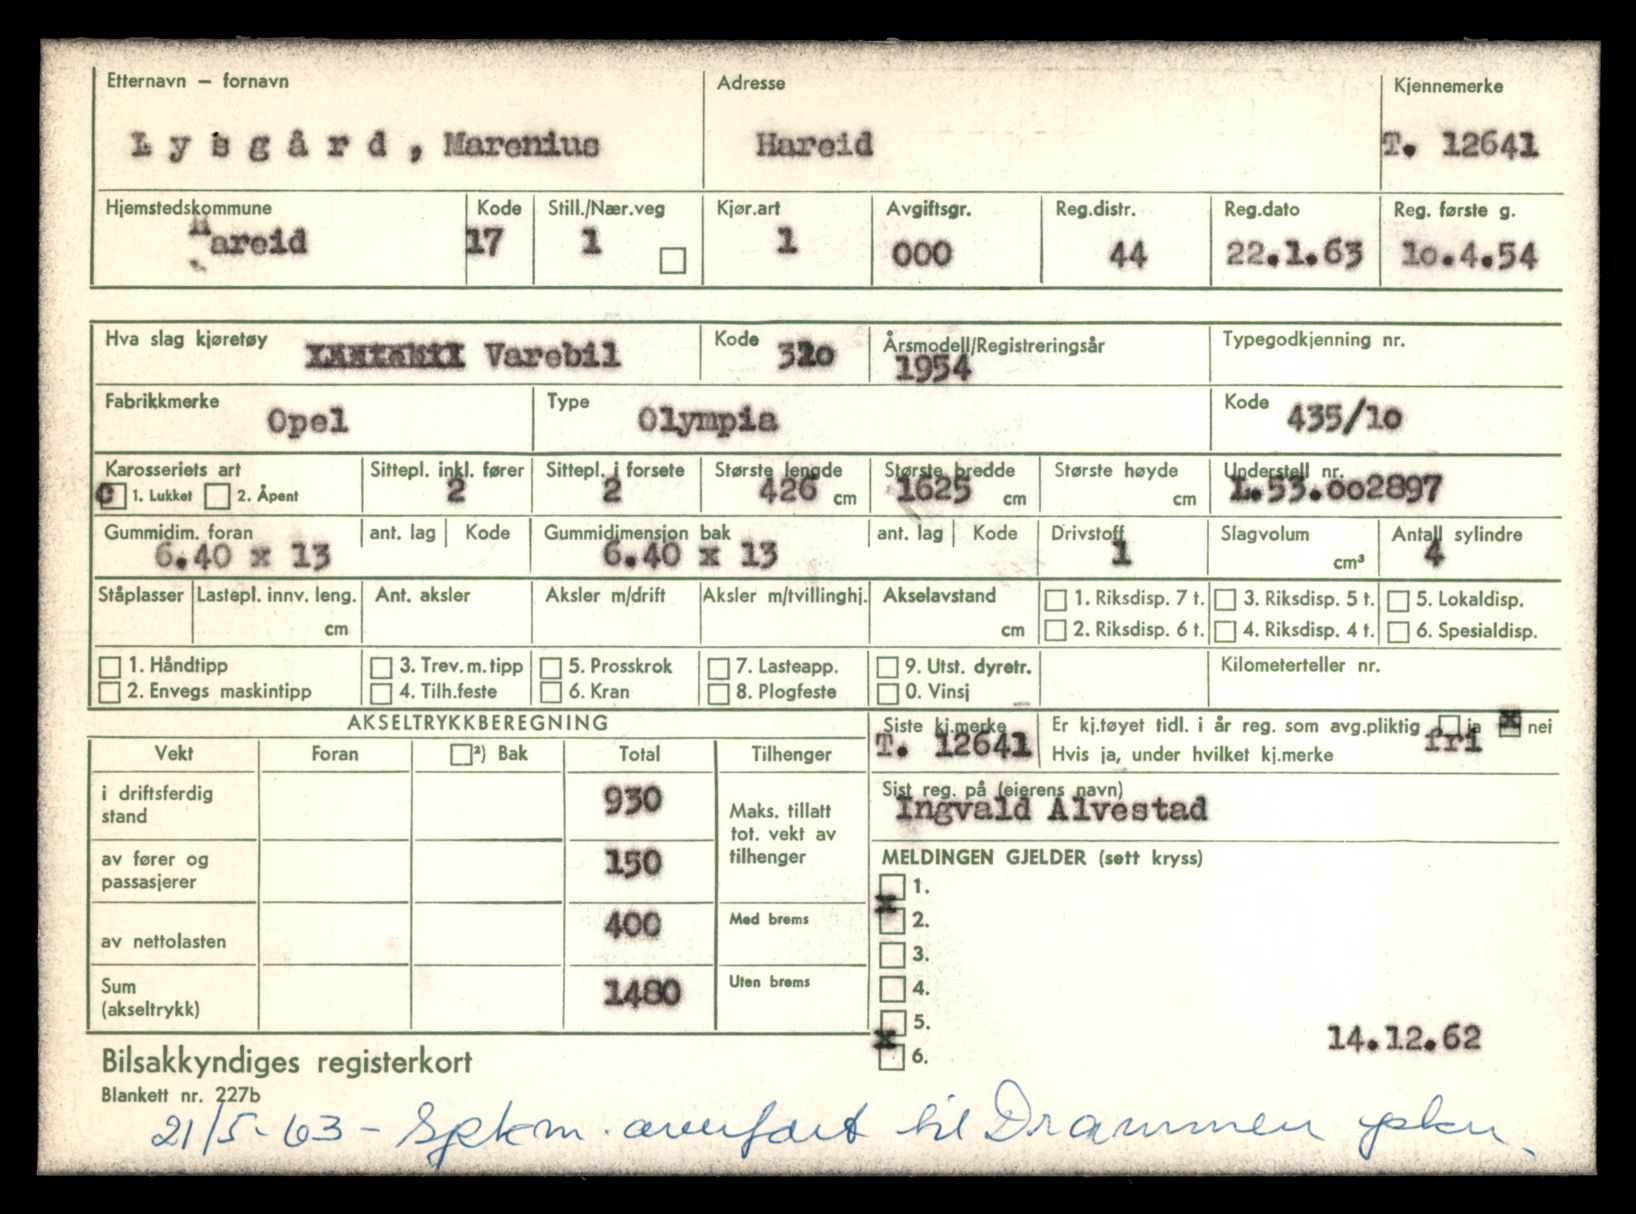 Etternavn – fornavn Adresse Kjennemerke
Lysgård, Marenius Hareid T. 12641
Hjemstedskommune Kode Still./Nær.veg Kjør.art Avgiftsgr. Reg.distr. Reg.dato Reg. første g.
Hareid 17 1 1 000 44 22.1.63 10.4.54
Hva slag kjøretøy Kode Årsmodell/Registreringsår Typegodkjenning nr.
Varebil 320 1954
Fabrikkmerke Type Kode
Opel Olympia 435/10
Karosseriets art Sittepl. inkl. fører Sittepl. i forsete Største lengde Største bredde Største høyde Understell nr.
1. Lukket 2. Åpent 2 2 426 cm 1625 cm cm L.53.002897
Gummidim. foran ant. lag Kode Gummidimensjon bak ant. lag Kode Drivstoff Slagvolum Antall sylindre
6.40 x 13 6.40 x 13 1 cm³ 4
Ståplasser Lastepl. innv. leng. Ant. aksler Aksler m/drift Aksler m/tvillinghj. Akselavstand 1. Riksdisp. 7 t. 3. Riksdisp. 5 t. 5. Lokaldisp.
cm cm 2. Riksdisp. 6 t. 4. Riksdisp. 4 t. 6. Spesialdisp.
1. Håndtipp 3. Trev. m. tipp 5. Prosskrok 7. Lasteapp. 9. Utst. dyretr. Kilometerteller nr.
2. Envegs maskintipp 4. Tilh.feste 6. Kran 8. Plogfeste 0. Vinsj
AKSELTRYKKBEREGNING Siste kj.merke Er kj.tøyet tidl. i år reg. som avg.pliktig ja x nei
Vekt Foran ²) Bak Total Tilhenger T. 12641 Hvis ja, under hvilket kj.merke fri
i driftsferdig stand 930 Maks. tillatt tot. vekt av tilhenger
Sist reg. på (eierens navn)
Ingvald Alvestad
av fører og passasjerer 150
MELDINGEN GJELDER (sett kryss)
1.
x
av nettolasten 400 Med brems 2.
3.
Sum (akseltrykk) 1480 Uten brems 4.
5.
x
6.
14.12.62
Bilsakkyndiges registerkort
Blankett nr. 227b
21/5-63 - overført til Drammen